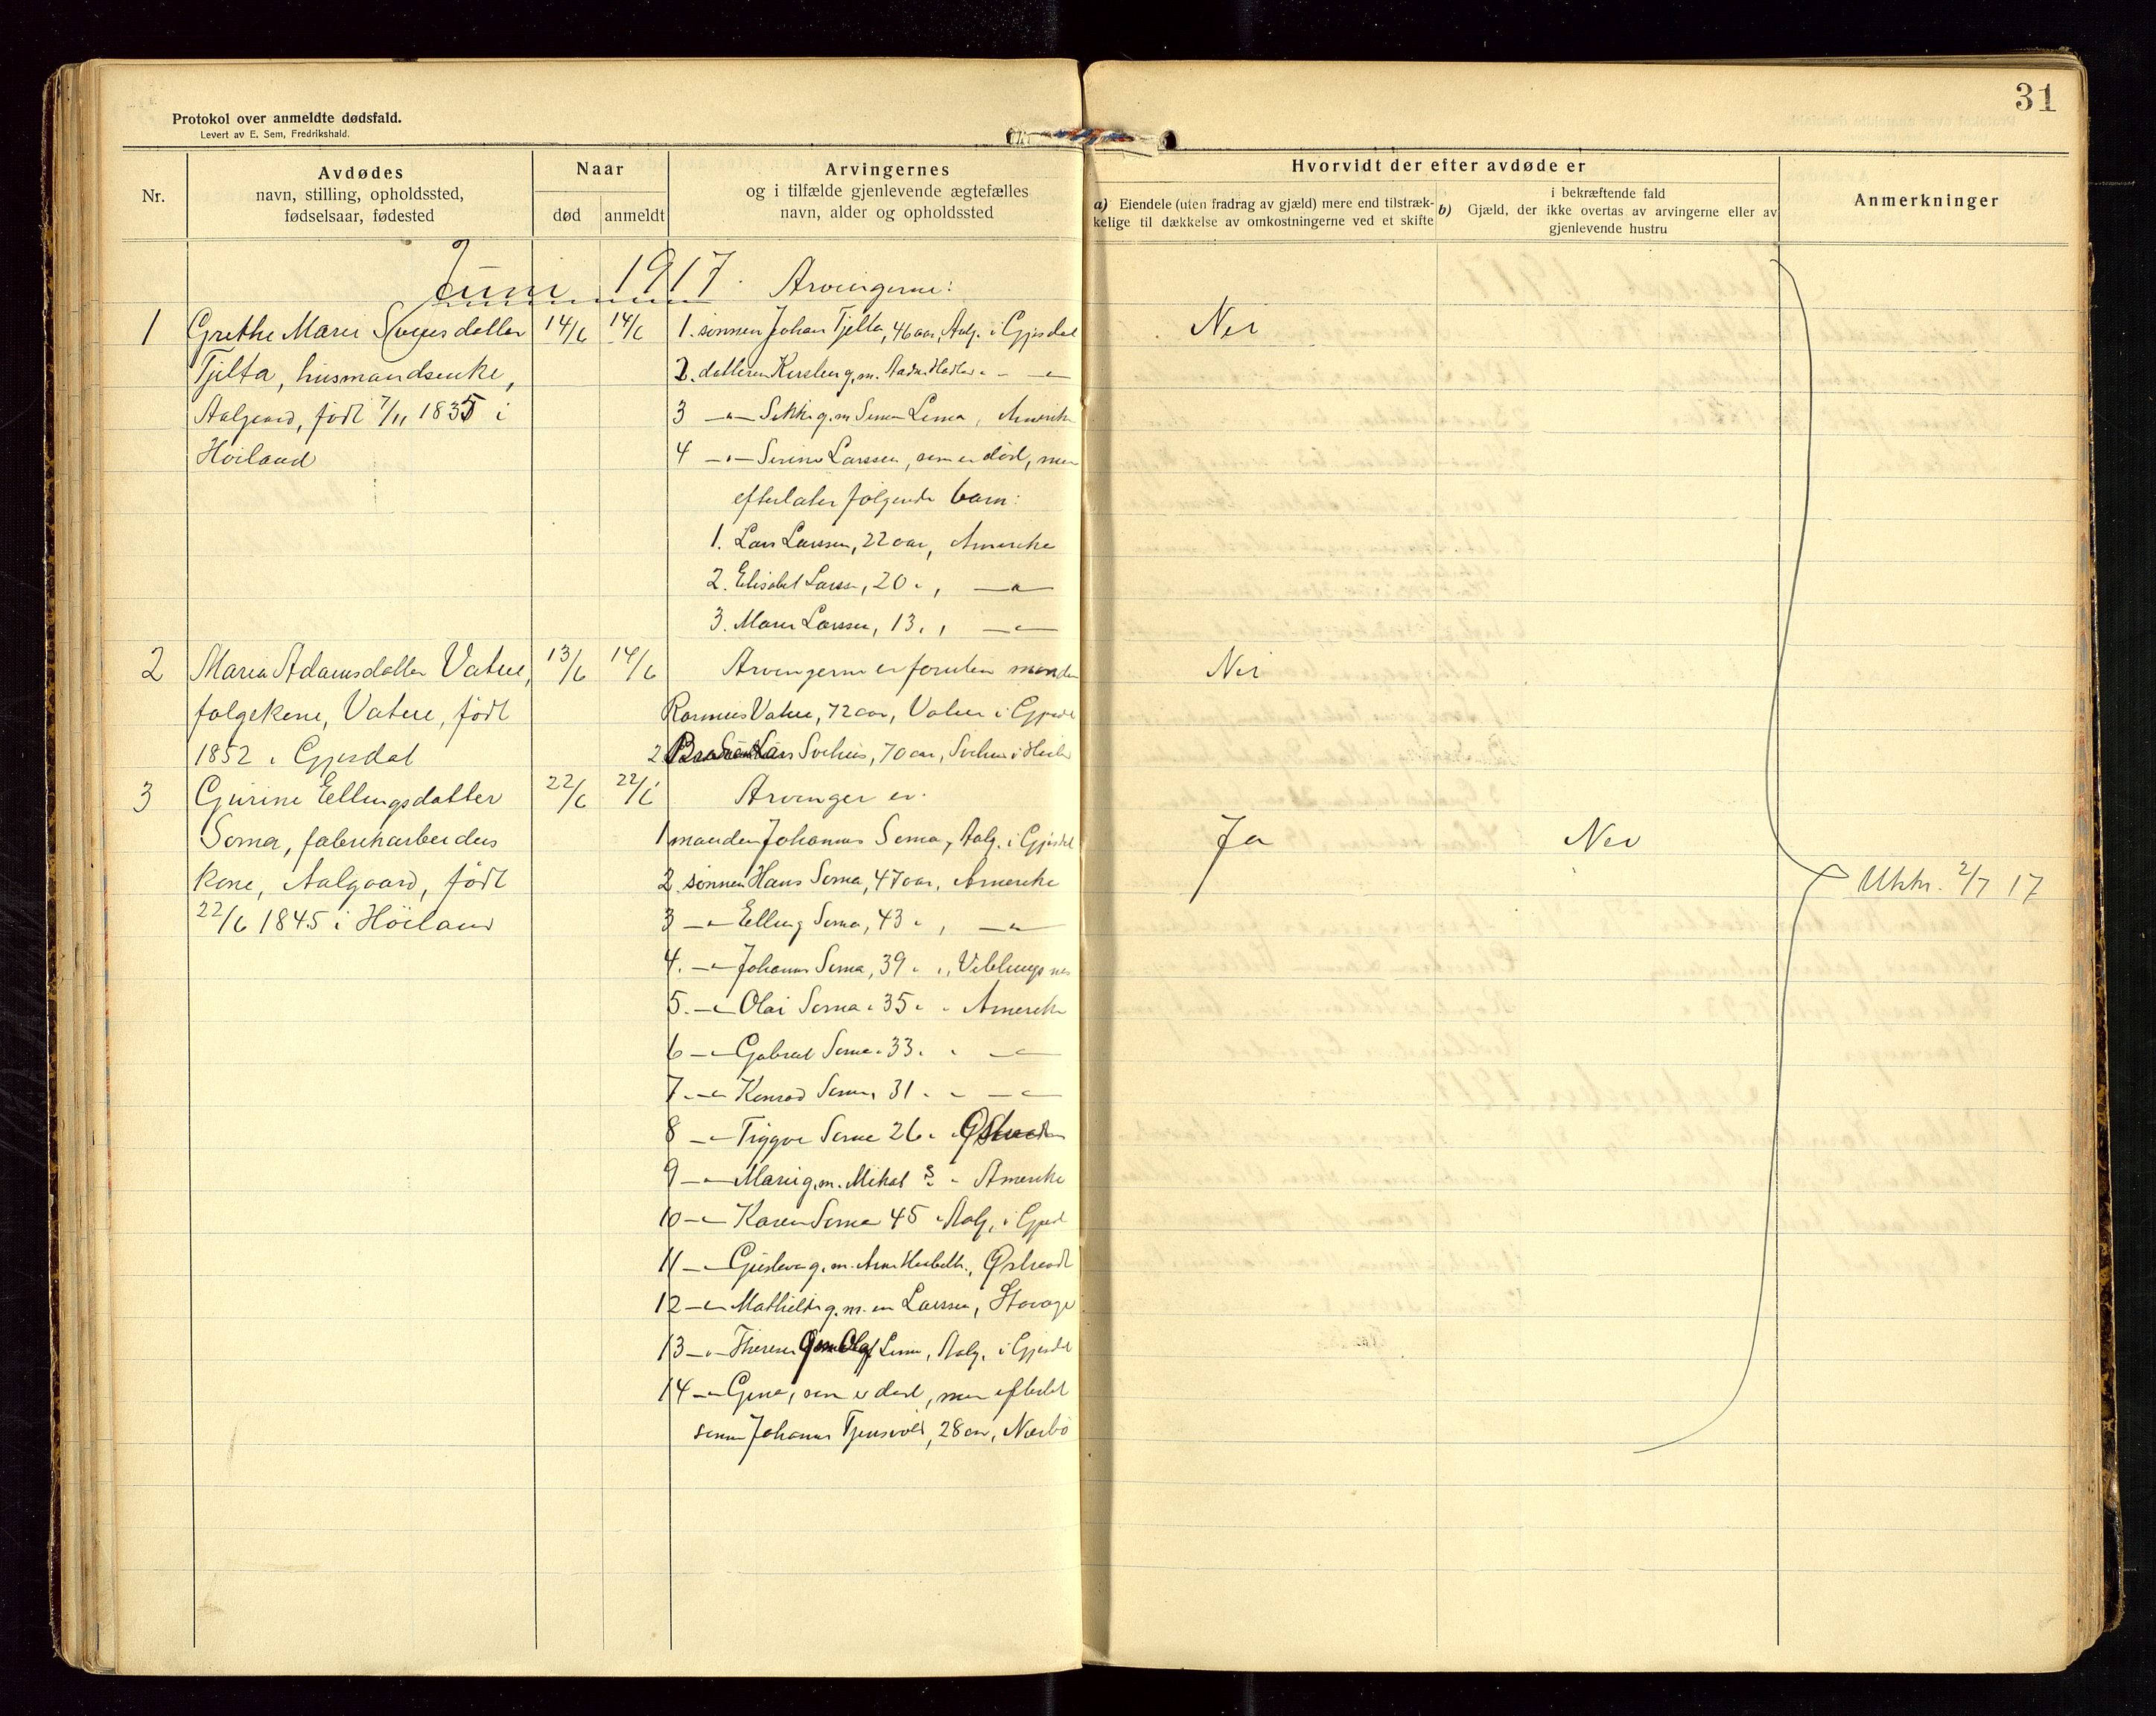 31
Protokol over anmeldte dødsfald.
Levert av E. Sem, Fredrikshald.
Nr.
Avdødes
navn, stilling, opholdssted,
fødselsaar, fødested
Naar
død
anmeldt
Arvingernes
og i tilfælde gjenlevende ægtefælles
navn, alder og opholdssted
Hvorvidt der efter avdøde er
a) Eiendele (uten fradrag av gjæld) mere end tilstræk-
kelige til dækkelse av omkostningerne ved et skifte
i bekræftende fald
b) Gjæld, der ikke overtas av arvingerne eller av
gjenlevende hustru
Anmerkninger
Juni 1917. Arvingerne:
1 Grethe Marie Svensdatter 14/6 14/6 1. sønnen Johan Tjelta, 46 aar, Aalg. i Gjesdal Nei
Tjelta, husmandsenke, 2. datteren g.m.
Aalgaard, født 7/11 1835 i 3 —"— g.m. Lima, Amerika
Höiland 4 —"— Serine Larssen, som er død, men
efterlater følgende barn:
1. Lars Larssen, 22 aar, Amerika
2. Elisabet Larssen, 20 " , —"—
3. Marie Larssen, 13 " , —"—
2 Maria Adamsdatter Vatne, 13/6 14/6 Arvingerne er foruten manden Nei
følgekone, Vatne, født Rasmus Vatne, 72 aar, Vatne i Gjesdal
1852 i Gjesdal 2 Lars Svihus, 70 aar, Svihus i
3 Gurine Ellingsdatter 22/6 22/6 Arvinger er.
Soma, fabrikarbeiders 1 manden Johannes Soma, Aalg. i Gjesdal Ja Nei
kone, Aalgaard, født 2. sønnen Hans Soma, 47 aar, Amerika 2/7 17
22/6 1845 i Höiland 3 —"— Elling Soma, 43 " , —"—
4. —"— Johannes Soma, 39 " "
5. —"— Olai Soma " 35 " " Amerika
6 —"— Gabriel Soma " 33 " " —"—
7. —"— Konrad Soma, 31 " " —"—
8 —"— Trygve Soma 26 "
9 —"— Marie g.m. Mikal ? " Amerika
10 —"— Karen Soma 45 " Aalg. i Gjesd
11 —"— g.m.
12 —"— Mathilde g.m. en Larssen, Stavange
13 —"— Therese g.m. Olaf Lima, Aalg. i Gjesdal
14 —"— Gina, som er død, men efterlot
sønnen Johannes Tjensvold, 28 aar, Nærbö